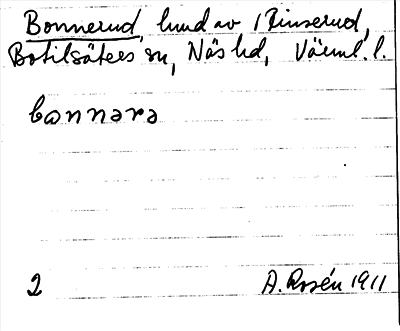 Bonnerud, lund av 1 Rinserud,
Botilsäters sn, Näs hd, Värml. l.
bannərə
2 A. Rosén 1911